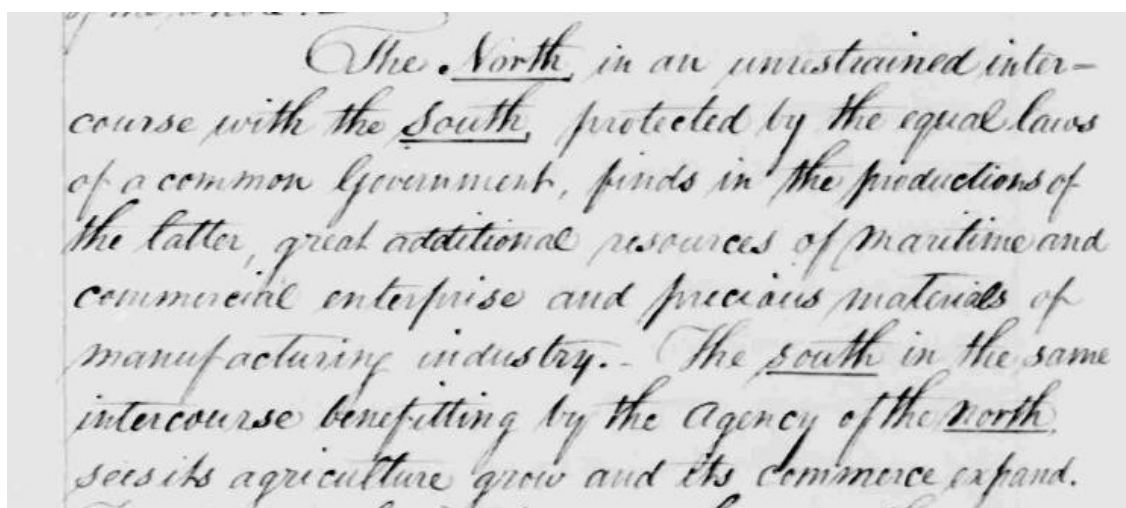 The North, in an unrestrained inter-
course with the South, protected by the equal laws
of a common Government, finds in the productions of
the latter, great additional resources of maritime and
commercial enterprise and precious materials of
manufacturing industry.- The south in the same
intercourse benefitting by the agency of the north,
sees its agriculture grow and its commerce expand.